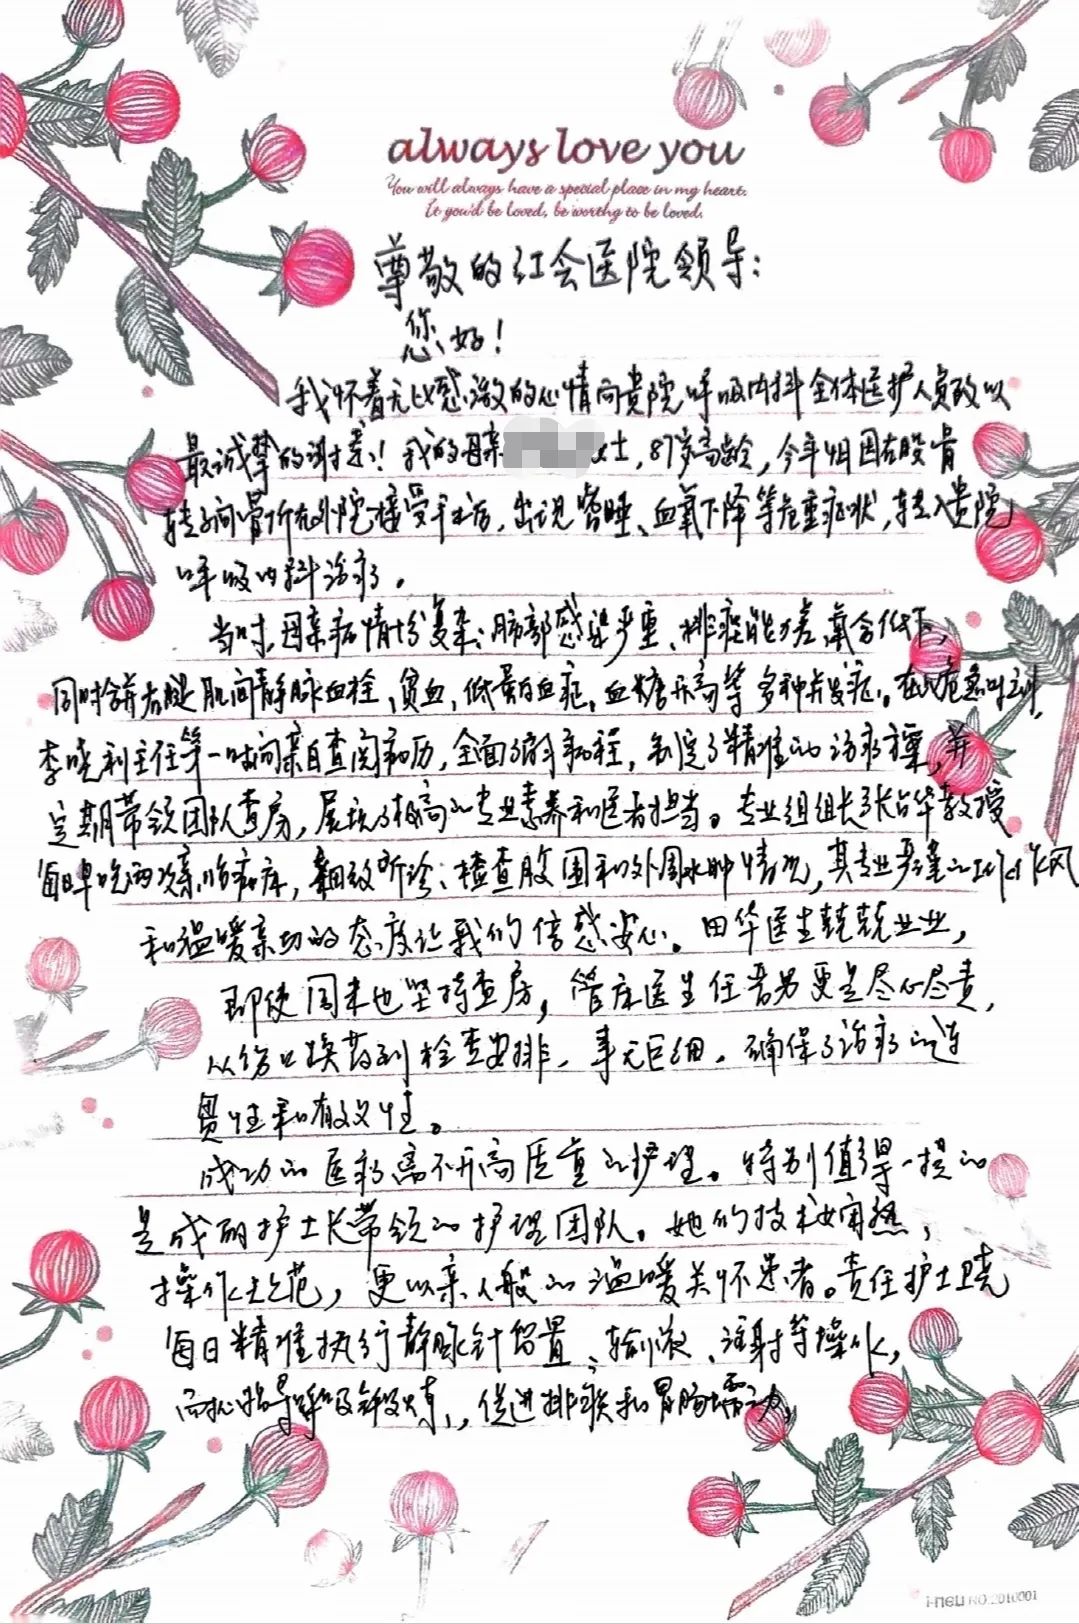 always love you
You will always have a special place in my heart.
If you'd be loved, be worthy to be loved.
尊敬的红会医院领导：
您好！
我怀着无比感激的心情向贵院呼吸内科全体医护人员致以
最诚挚的谢意！我的母亲 女士，87岁高龄，今年 因右股骨
转子间骨折在外院接受手术后，出现嗜睡、血氧下降等危重症状，转入贵院
呼吸内科治疗。
当时，母亲病情十分复杂：肺部感染严重、排痰能力差、氧合低下，
同时合并右腿肌间静脉血栓、贫血、低蛋白血症、血糖升高等多种并发症。在此危急时刻，
李晓利主任第一时间亲自查阅病历，全面了解病程，制定了精准的治疗方案，并
定期带领团队查房，展现了极高的专业素养和医者担当。专业组组长张占华教授
每日早晚两次亲临病床，细致听诊、检查腹围和外周水肿情况，其专业严谨的工作作风
和温暖亲切的态度让我们倍感安心。田华医生兢兢业业，
即使周末也坚持查房，管床医生任 男更是尽心尽责，
从伤口换药到检查安排，事无巨细，确保了治疗的连
贯性和有效性。
成功的医疗离不开高质量的护理。特别值得一提的
是成丽护士长带领的护理团队。她们技术娴熟，
操作规范，更以亲人般的温暖关怀患者。责任护士卫尧
每日精准执行静脉针留置、输液、注射等操作，
耐心指导呼吸锻炼，促进排痰和胃肠蠕动，
NO.2010001